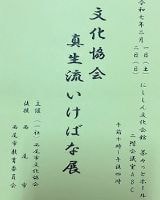 令和七年三月一日(土)
二日(日)
にししん文化会館
二階会議室ABC
午前十時~午後四時
文化協会
真生流いけばな展
主催 (一社)西尾市文化協会
後援 西尾市
西尾市教育委員会